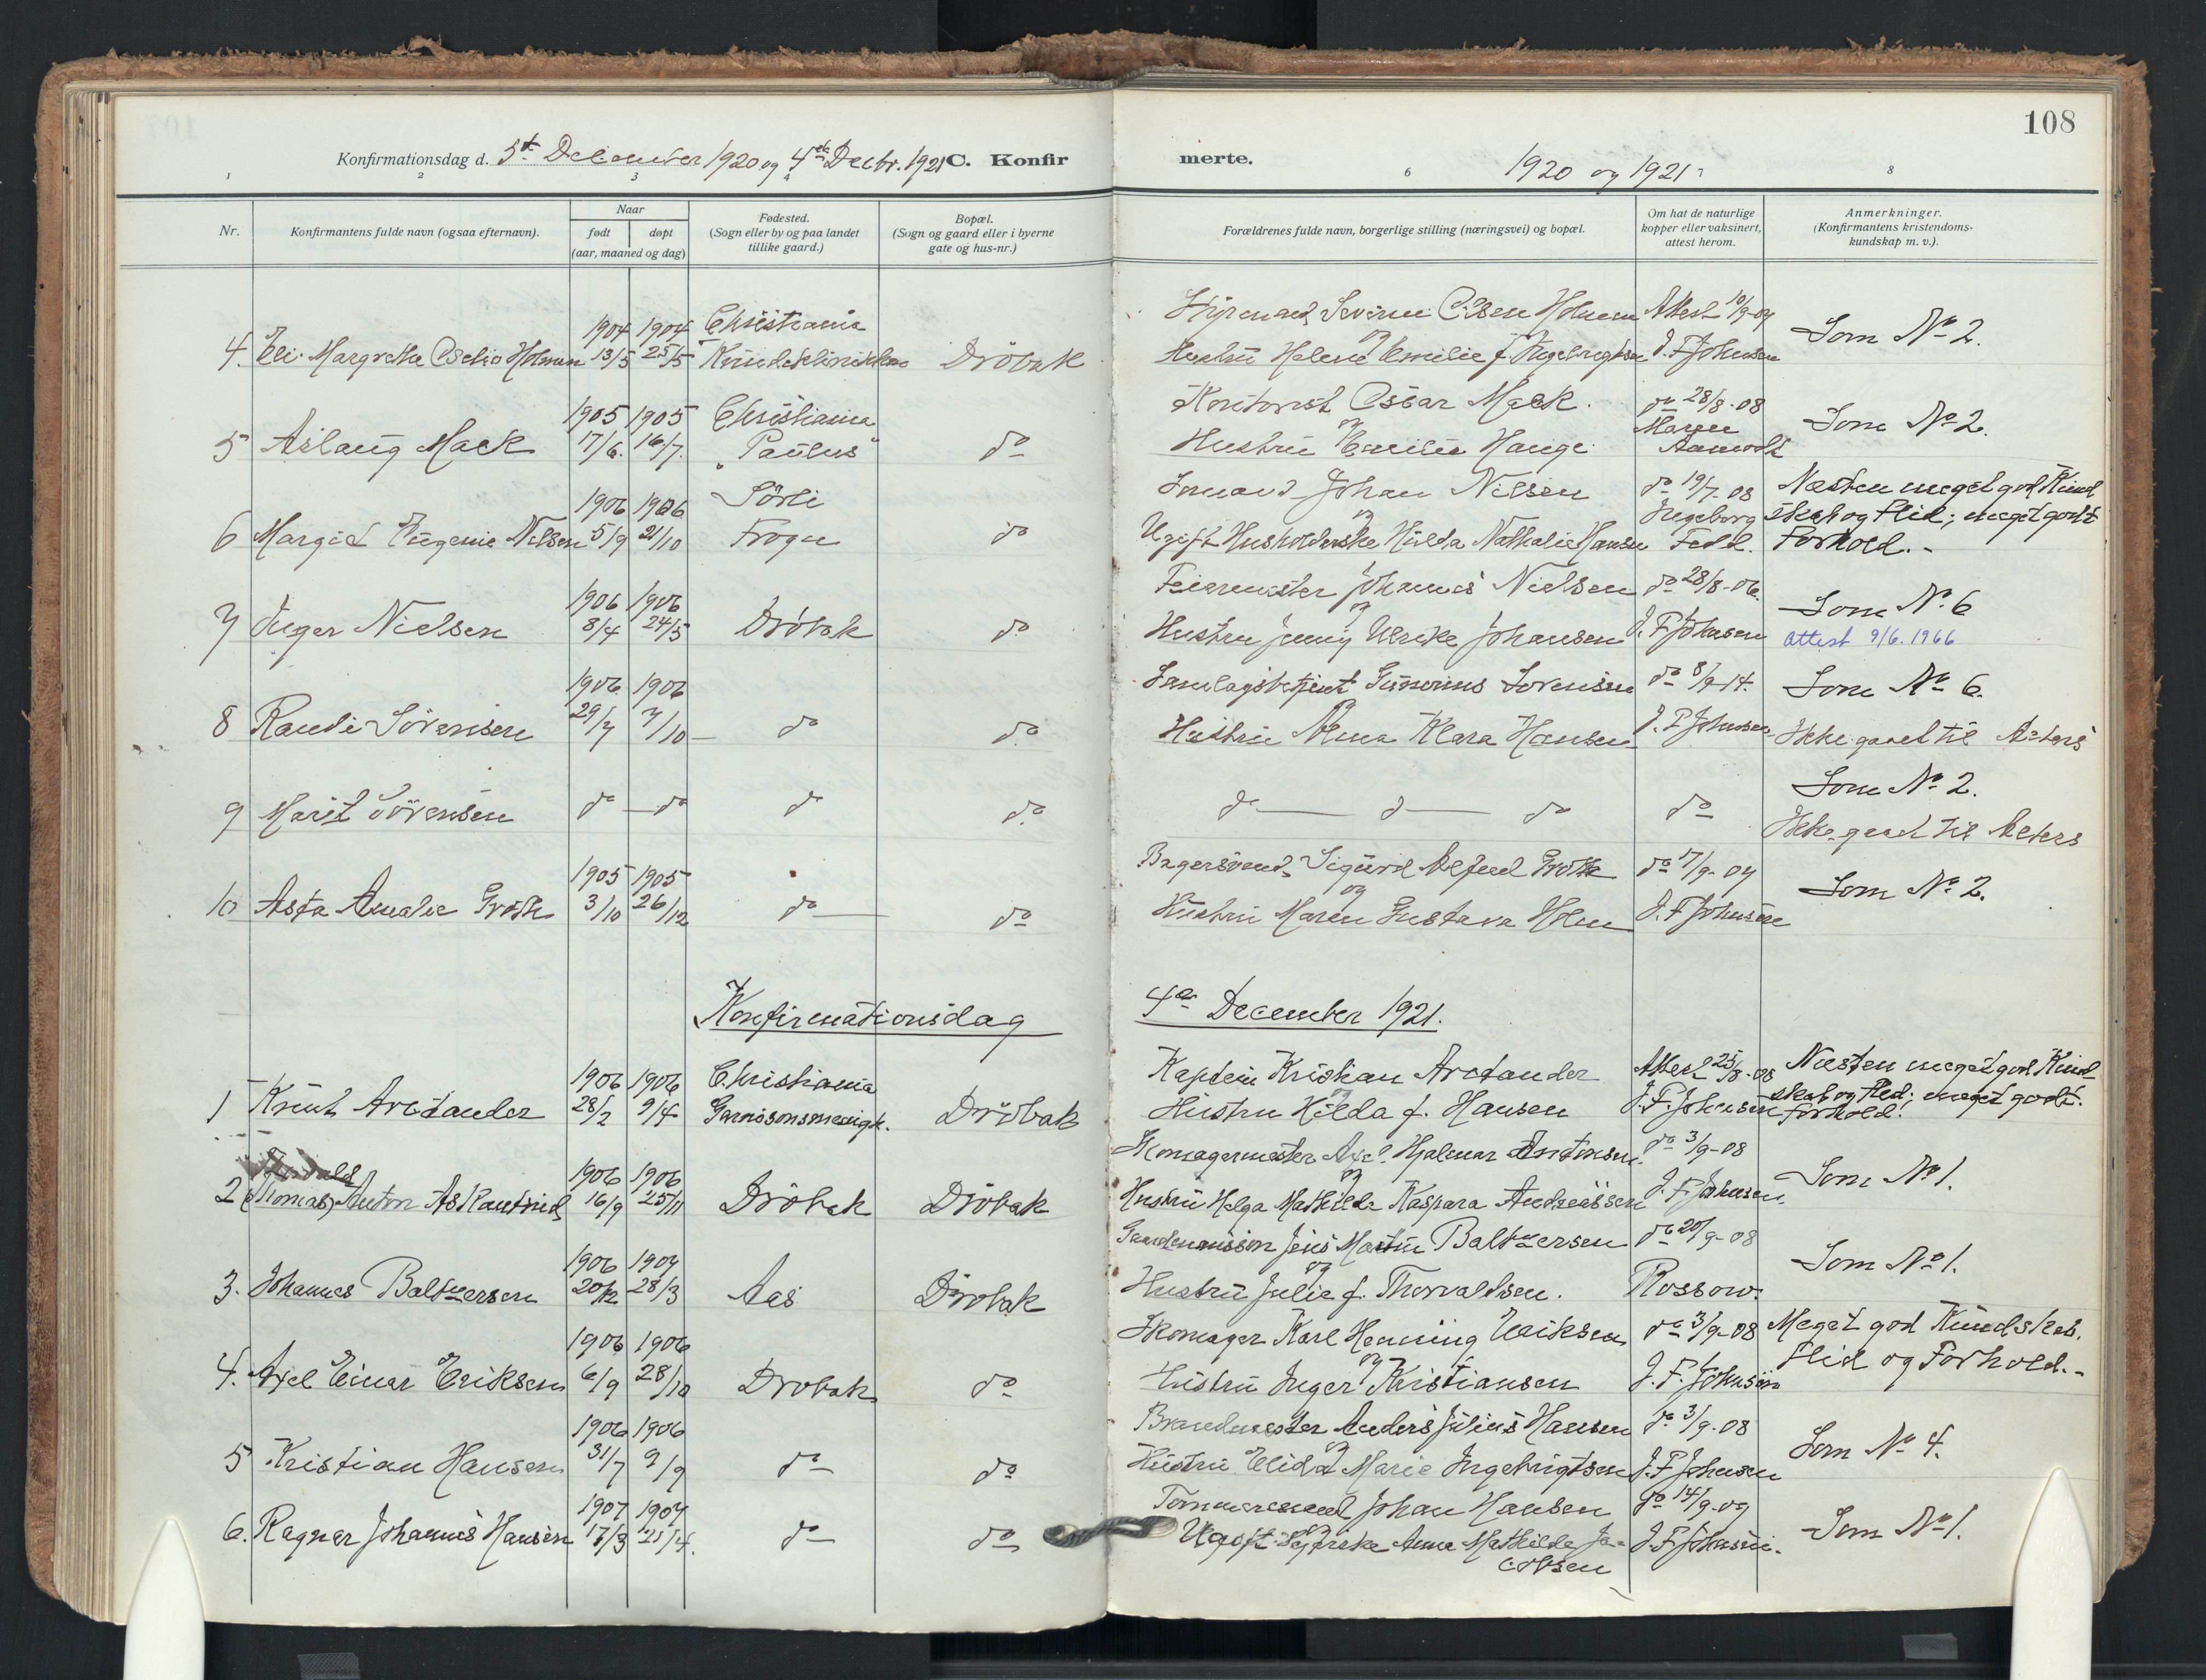 108
Konfirmationsdag d. 5te December 1920 og 4de Decbr. 1921 C. Konfir merte. 1920 og 1921
1 2 3 4 6 7 8
Nr. Konfirmantens fulde navn (ogsaa efternavn). Naar født døpt (aar, maaned og dag) Fødested. (Sogn eller by og paa landet tillike gaard.) Bopæl. (Sogn og gaard eller i byerne gate og hus-nr.) Forældrenes fulde navn, borgerlige stilling (næringsvei) og bopæl. Om hat de naturlige kopper eller vaksinert, attest herom. Anmerkninger. (Konfirmantens kristendoms-kundskap m. v.).
1904 1904 Christiania Severin Olsen Holmen Attest 10/9-04
4. Eli Margrethe Holmen 13/5 25/5 Kvindeklinikken Dröbak Hustru Helene Emilie f. Ingebrigtsen J. F. Johnsen Som No 2.
1905 1905 Christiania Kontorist Oscar Mack. do 28/8-08
5 Aslaug Mack 17/6. 16/7. "Paulus" do og Hustru Emilie Hauge Maren Aamodt Som No 2.
1906 1906 Sörli Sömand Johan Nilsen do 19/7-08 Næsten meget god Kund
6 Margit Eugenie Nilsen 5/9 21/10 Frogn do og Ugift Husholderske Hulda Nathalie Hansen Ingeborg skab og Flid; meget godt Forhold.-
1906 1906 Feiermester Johannes Nielsen do 28/8-06.
7 Inger Nielsen 8/4 24/5 Dröbak do og Hustru Jenny Ulrike Johansen J. F. Johnsen Som No 6
Attest 9/6. 1966
1906 1906 Samlagsbetjent Gunerius Sörensen do 8/9-14. Som No 6.
8 Randi Sörensen 29/7 7/10 do do og Hustru Alma Klara Hansen J. F. Johnsen Ikke gaaet til Alters
9 Marit Sörensen do do do do do do do do Som No 2.
Ikke gaaet til Alters
1905 1905 Bagersvend Sigurd Alfred Groth do 17/9-04
10 Asta Amalie Groth 3/10 26/12 do do og Hustru Maren Gustava Holm J. F. Johnsen Som No 2.
Konfirmationsdag 4de December 1921.
1906 1906 Christiania Kaptein Kristian Arctander Attest 25/8-08 Næsten meget god Kund
1 Knut Arctander 28/2 9/4 Garnisonsmenigh. Dröbak og Hustru Hilda f. Hansen J. F. Johnsen skab og Flid; meget godt Forhold.
1906 1906 Skomagermester Axel Hjalmar Antonsen. do 3/9-08
2 (Thomas) Anton 16/9 25/11 Dröbak Dröbak og Hustru Helga Mathilde Kaspara Andreassen J. F. Johnsen. Som No 1.
1906 1907 Gaardmandssön Jens Martin Baltzersen do 20/9-08
3. Johannes Baltzersen 20/12 28/3 Aas Dröbak og Hustru Julie f. Thorvaldsen. Rossow. Som No 1.
1906 1906 Skomager Karl Henning Eriksen do 3/9-08 Meget god Kundskab.
4. Axel Einar Eriksen 6/9 28/10 Dröbak do og Hustru Inger Kristiansen J. F. Johnsen Flid og Forhold.-
1906 1906 Brandmester Anders Julius Hansen do 3/9-08
5 Kristian Hansen 31/7 9/9 do do og Hustru Elida Marie Ingebrigtsen J. F. Johnsen Som No 4.
1907 1907 Tömmermand Johan Hansen do 14/9-09
6. Ragnar Johannes Hansen 17/3 21/4. do do og Ugift Syerske Anna Mathilde Ja=
cobsen J. F. Johnsen. Som No 1.